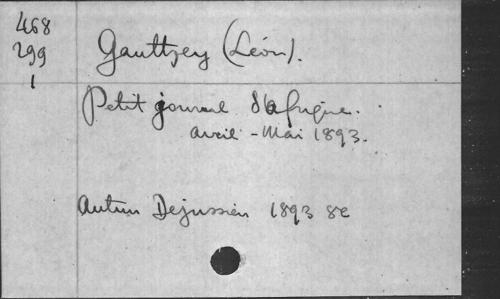 468
299
1
Gauttzey (Léon).
Petit journal d'Afrique.
Avril - Mai 1893.
Autun Dejussieu 1893 8e